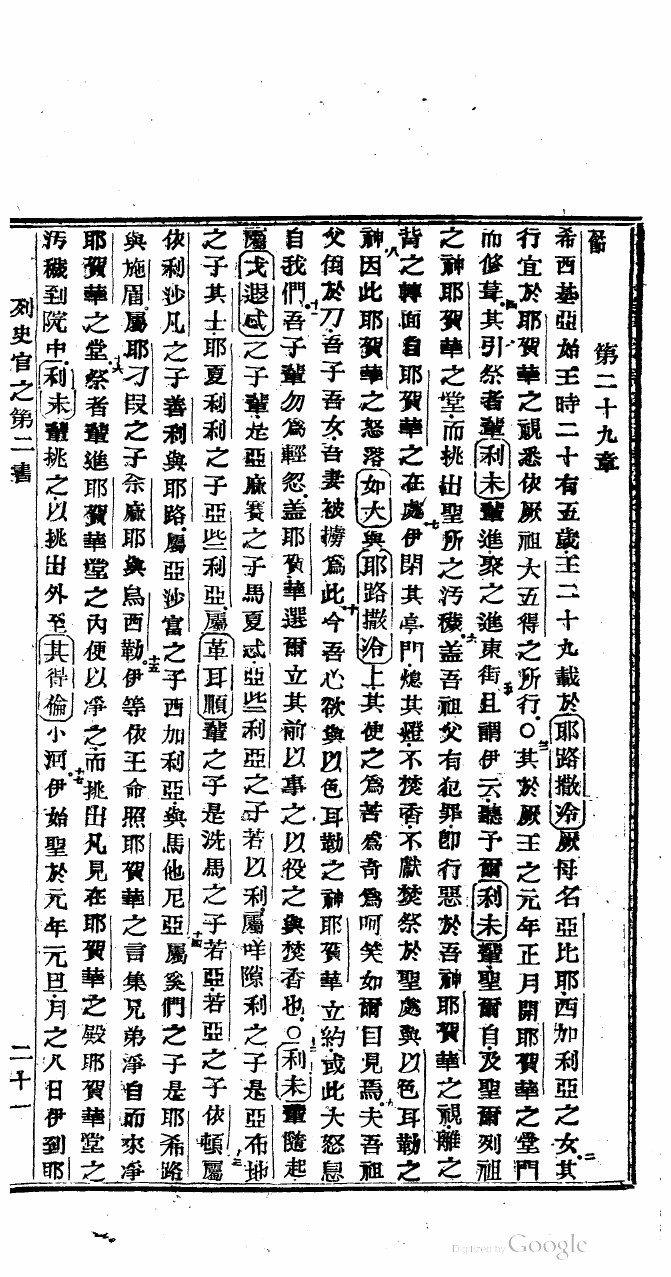 第二十九章
希西基亞始王時二十有五歲王二十九載於耶路撒冷厥母名亞比耶西加利亞之女其
行宜於耶賀華之視悉依厥祖大五得之所行○其於厥王之元年正月開耶賀華之堂門
而修葺其引祭者輩利未輩進聚之進東街且謂伊云聽予爾利未輩聖爾自及聖爾列祖
之神耶賀華之堂而挑出聖所之汚穢盖吾祖父有犯罪卽行惡於吾神耶賀華之視離之
背之轉面自耶賀華之在處伊閉其亭門熄其燈不焚香不獻焚祭於聖處與以色耳勒之
神因此耶賀華之怒落如大與耶路撒冷上其使之爲苦爲奇爲呵笑如爾目見焉夫吾祖
父倒於刀吾子吾女吾妻被擄爲此今吾心欲與以色耳勒之神耶賀華立約或此大怒息
自我們吾子輩勿爲輕忽盖耶賀華選爾立其前以事之以役之與焚香也○利未輩隨起
屬戈遐忒之子輩是亞麻賽之子馬夏忒亞些利亞之子若以利屬咩隙利之子是亞布地
之子其士耶夏利利之子亞些利亞屬革耳順輩之子是洗馬之子若亞若亞之子依頓屬
依利沙凡之子善利與耶路屬亞沙富之子西加利亞與馬他尼亞屬奚們之子是耶希路
與施眉屬耶刁段之子佘麻耶與烏西勒伊等依王命照耶賀華之言集兄弟淨自而來凈
耶賀華之堂祭者輩進耶賀華堂之內便以凈之而挑出凡見在耶賀華之殿耶賀華堂之
汚穢到院中利未輩挑之以挑出外至其得倫小河伊始聖於元年元旦月之八日伊到耶
列史官之第二書 二十一
二
三
四
五
六
七
八
九
十
十一
十二
十三
十四
十五
十六
十七
Digitized by Google